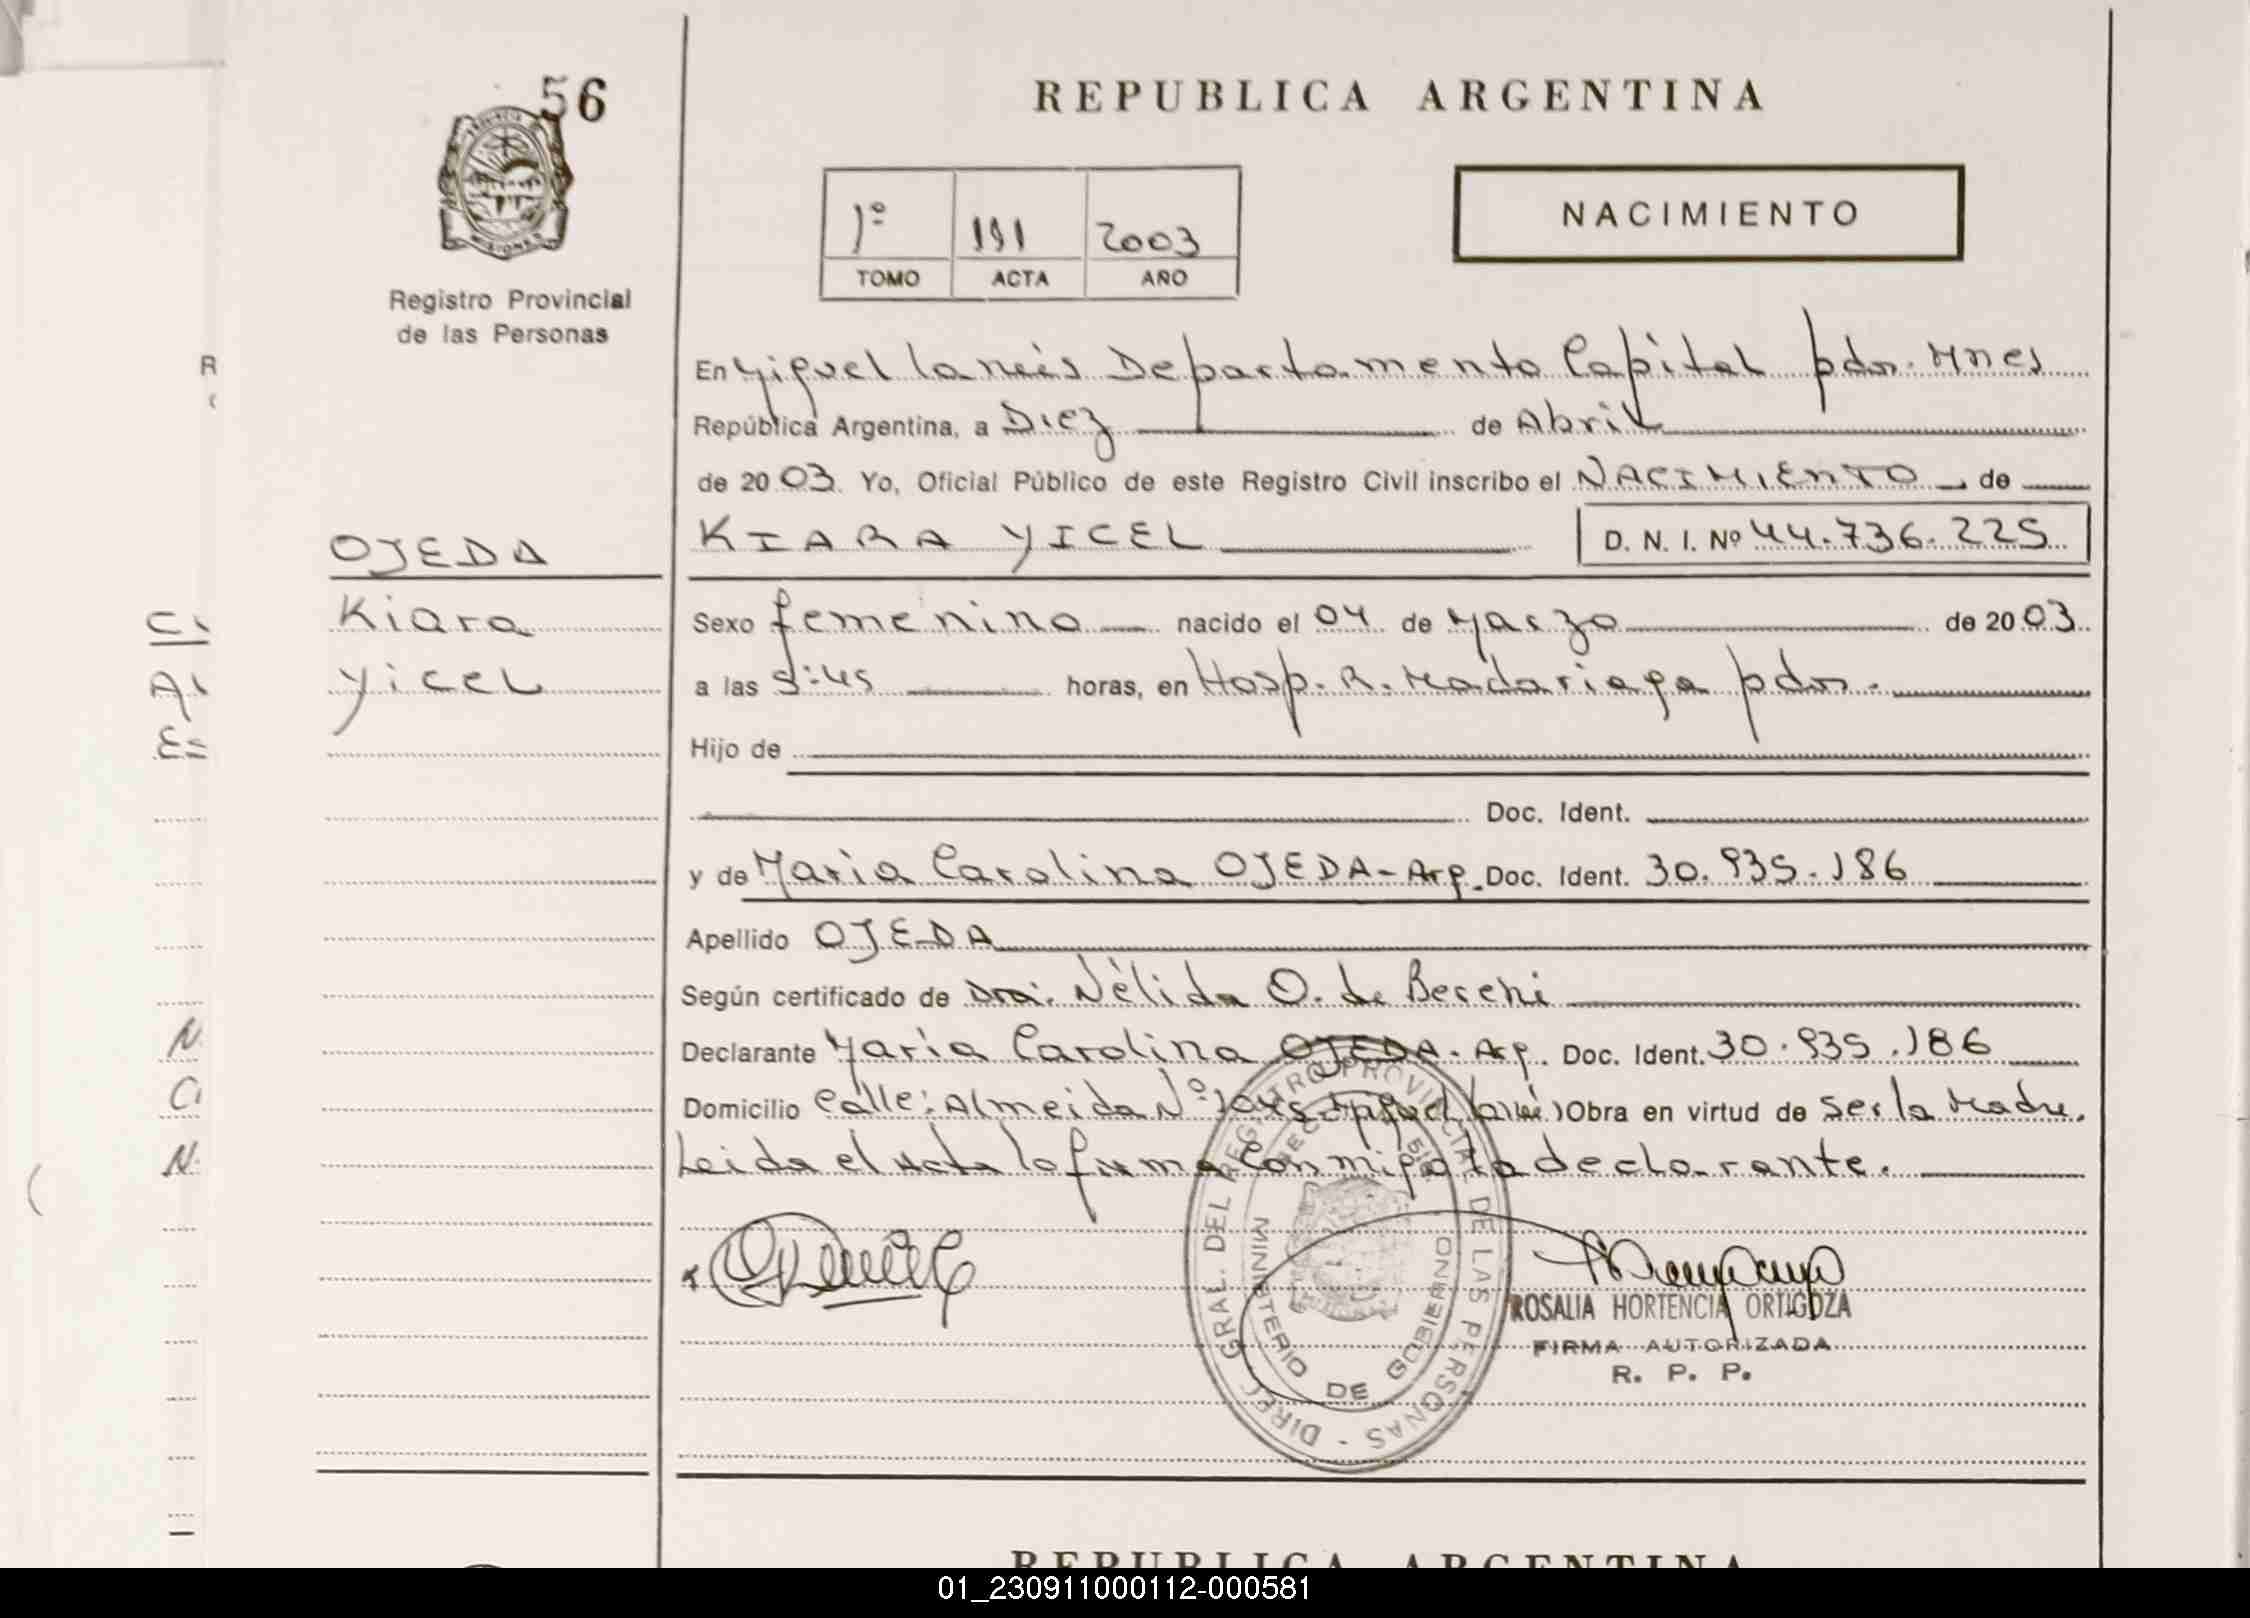 56
REPUBLICA ARGENTINA
PROVINCIA
MISIONES
Registro Provincial
de las Personas
1º 191 2003
TOMO ACTA AÑO
NACIMIENTO
En Miguel Lanús Departamento Capital pdas. Mnes
República Argentina, a Diez de Abril
de 2003. Yo, Oficial Público de este Registro Civil inscribo el NACIMIENTO de
KIARA YICEL D. N. I. Nº 44.736.225
OJEDA
Kiara
Yicel
Sexo femenino nacido el 04 de Marzo de 2003
a las 9:45 horas, en Hosp. R. Madariaga pdas.
Hijo de
Doc. Ident.
y de Maria Carolina OJEDA - Arg. Doc. Ident. 30.935.186
Apellido OJEDA
Según certificado de Dra. Nélida O. de
Declarante Maria Carolina OJEDA - Arg. Doc. Ident. 30.935.186
Domicilio Calle: Almeida Nº Miguel Lanús) Obra en virtud de ser la Madre.
Leida el acta la firma conmigo la declarante.
DIREC. GRAL. DEL REGISTRO PROVINCIAL DE LAS PERSONAS -
MINISTERIO DE GOBIERNO
ROSALIA HORTENCIA ORTIGOZA
FIRMA AUTORIZADA
R. P. P.
REPUBLICA ARGENTINA
01_230911000112-000581